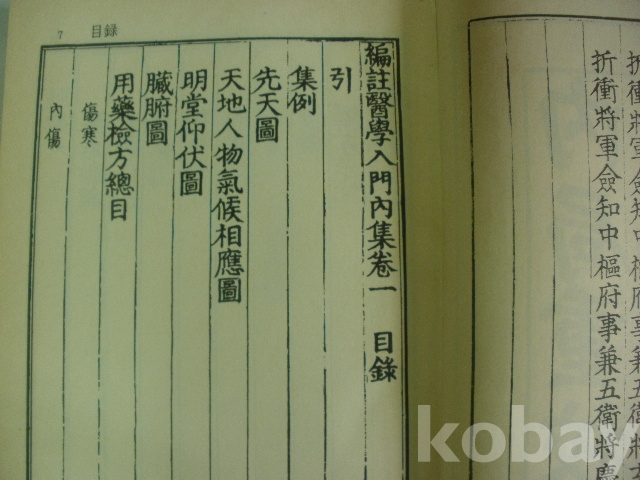 折衝將軍僉知中樞府事兼五衛將
折衝將軍僉知中樞府事兼五衛將
7 目錄
編註醫學入門內集卷一 目錄
引
集例
先天圖
天地人物氣候相應圖
明堂仰伏圖
臟腑圖
用藥檢方總目
傷寒
內傷
kobay